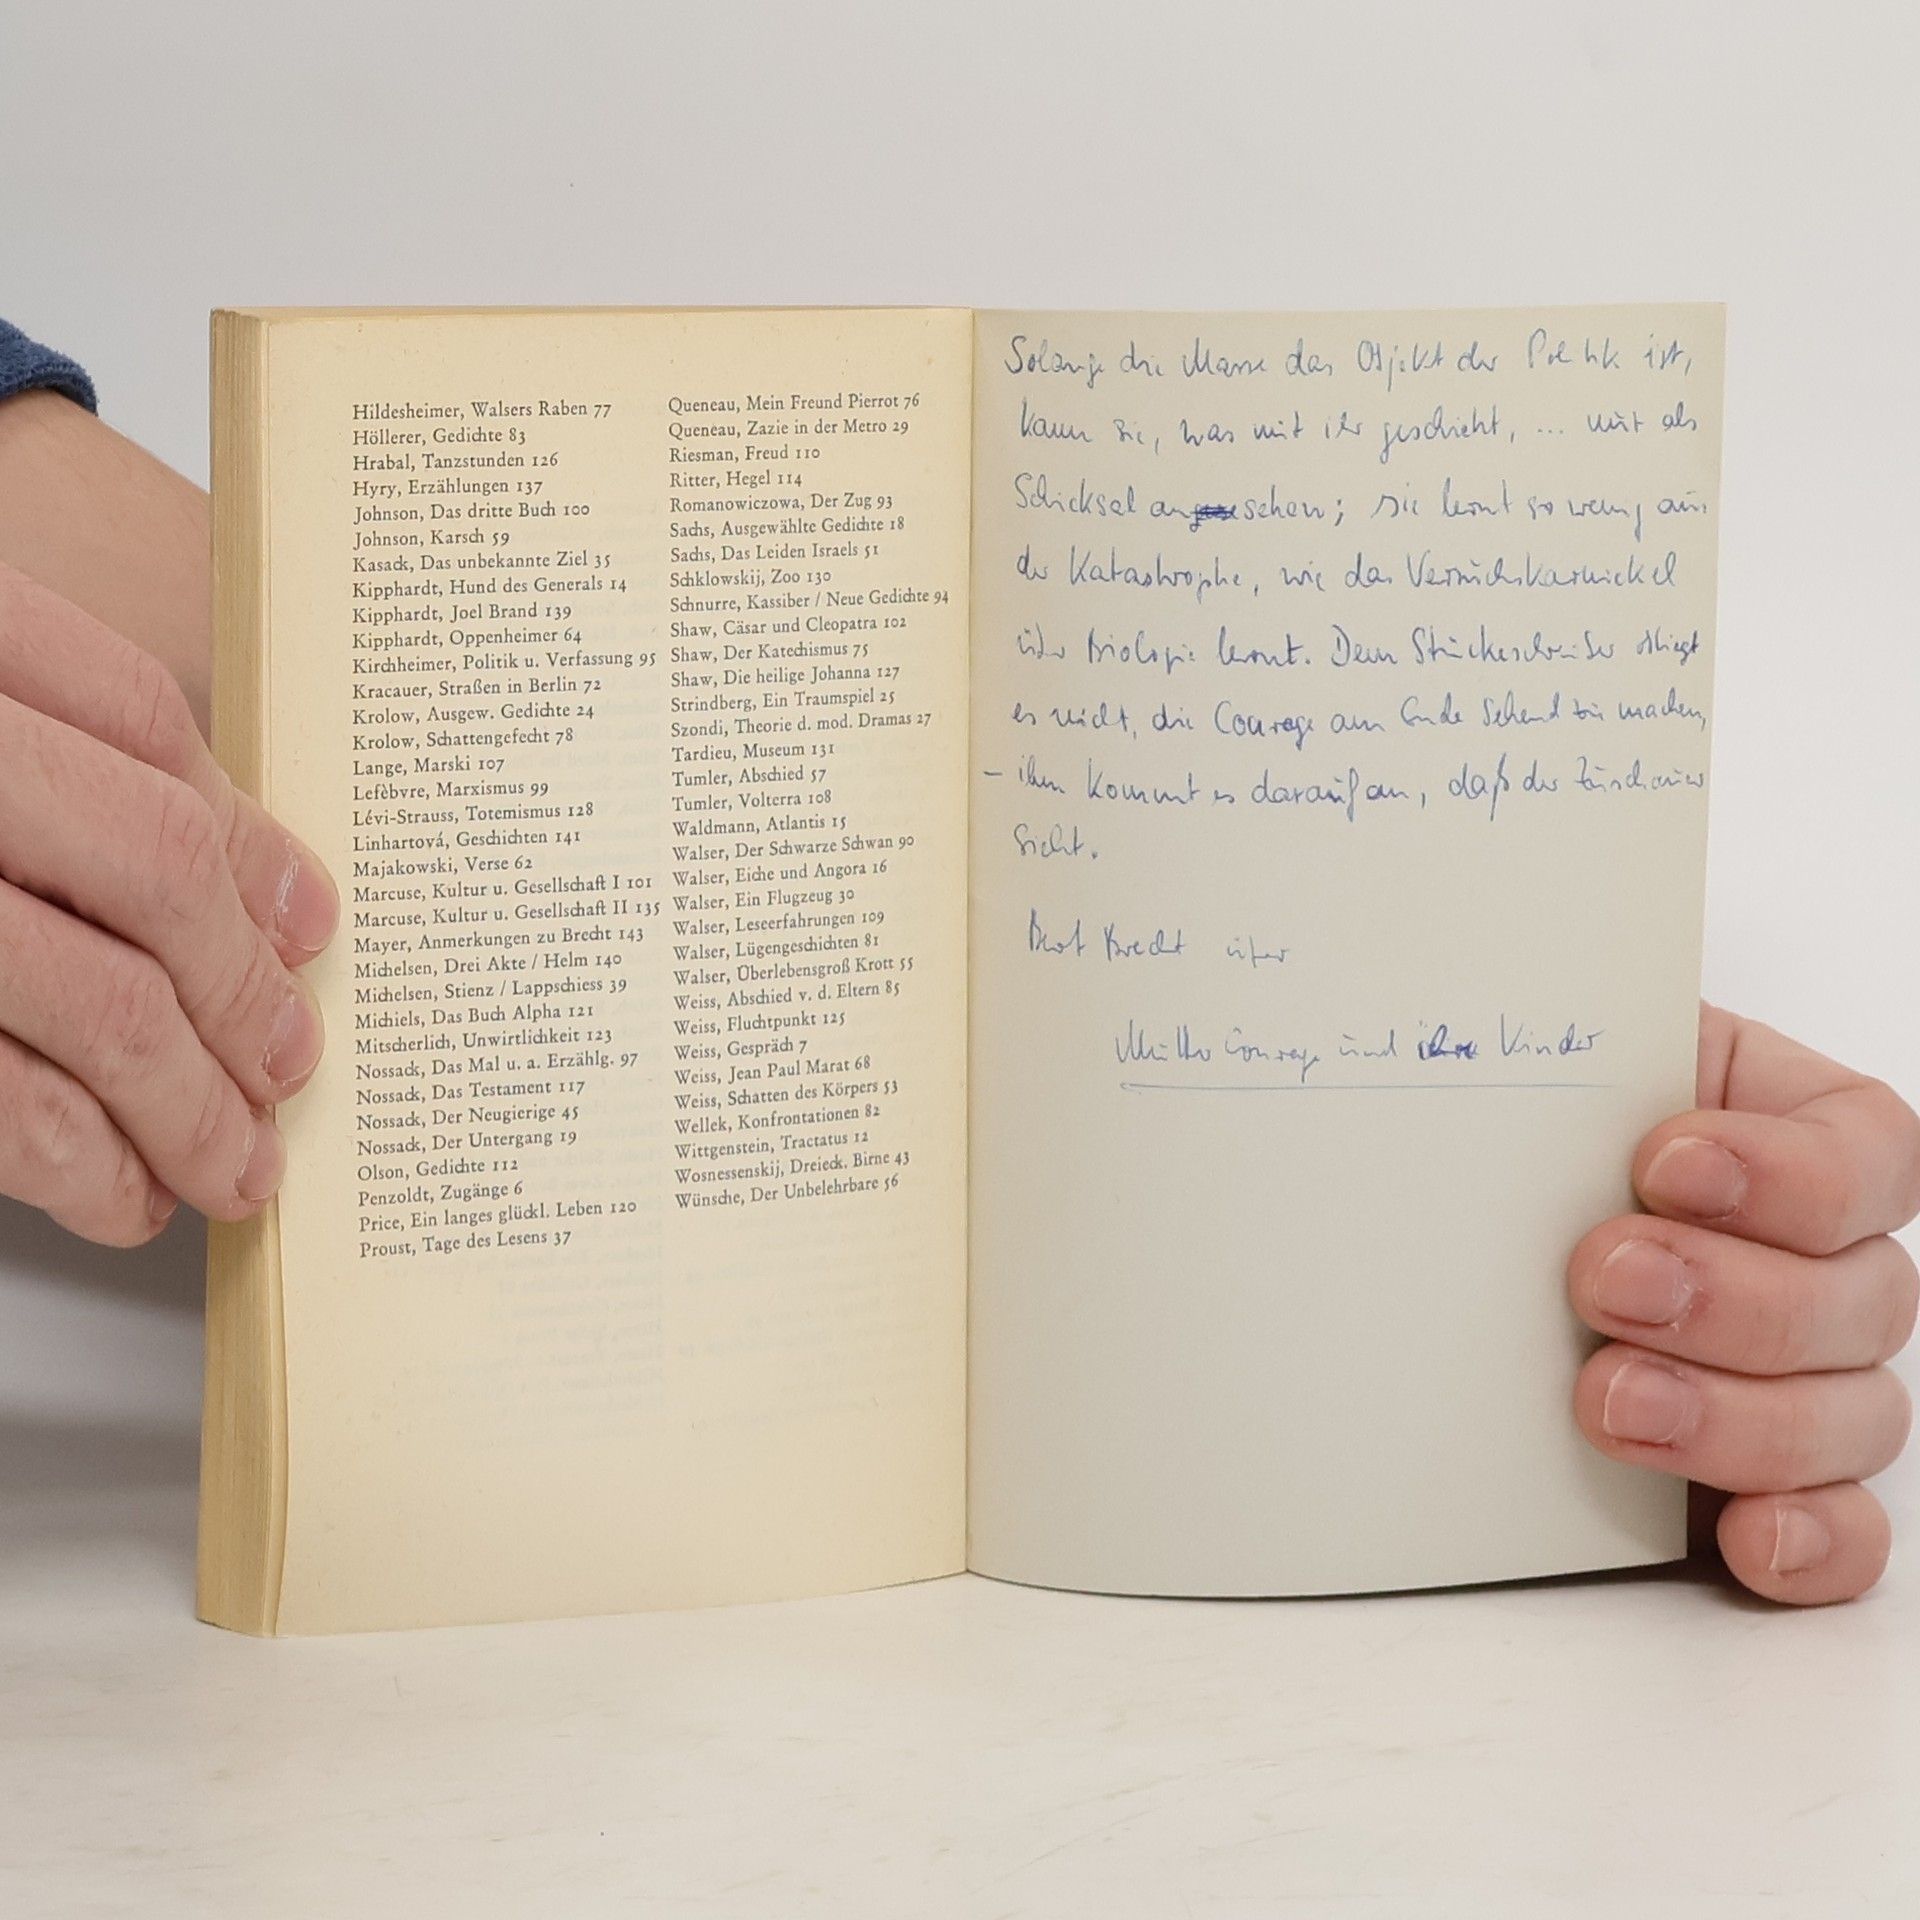 Hildesheimer, Walsers Raben 77
Höllerer, Gedichte 83
Hrabal, Tanzstunden 126
Hyry, Erzählungen 137
Johnson, Das dritte Buch 100
Johnson, Karsch 59
Kasack, Das unbekannte Ziel 35
Kipphardt, Hund des Generals 14
Kipphardt, Joel Brand 139
Kipphardt, Oppenheimer 64
Kirchheimer, Politik u. Verfassung 95
Kracauer, Straßen in Berlin 72
Krolow, Ausgew. Gedichte 24
Krolow, Schattengefecht 78
Lange, Marski 107
Lefèbvre, Marxismus 99
Lévi-Strauss, Totemismus 128
Linhartová, Geschichten 141
Majakowski, Verse 62
Marcuse, Kultur u. Gesellschaft I 101
Marcuse, Kultur u. Gesellschaft II 135
Mayer, Anmerkungen zu Brecht 143
Michelsen, Drei Akte / Helm 140
Michelsen, Stienz / Lappschiess 39
Michiels, Das Buch Alpha 121
Mitscherlich, Unwirtlichkeit 123
Nossack, Das Mal u. a. Erzählg. 97
Nossack, Das Testament 117
Nossack, Der Neugierige 45
Nossack, Der Untergang 19
Olson, Gedichte 112
Penzoldt, Zugänge 6
Price, Ein langes glückl. Leben 120
Proust, Tage des Lesens 37
Queneau, Mein Freund Pierrot 76
Queneau, Zazie in der Metro 29
Riesman, Freud 110
Ritter, Hegel 114
Romanowiczowa, Der Zug 93
Sachs, Ausgewählte Gedichte 18
Sachs, Das Leiden Israels 51
Schklowskij, Zoo 130
Schnurre, Kassiber / Neue Gedichte 94
Shaw, Cäsar und Cleopatra 102
Shaw, Der Katechismus 75
Shaw, Die heilige Johanna 127
Strindberg, Ein Traumspiel 25
Szondi, Theorie d. mod. Dramas 27
Tardieu, Museum 131
Tumler, Abschied 57
Tumler, Volterra 108
Waldmann, Atlantis 15
Walser, Der Schwarze Schwan 90
Walser, Eiche und Angora 16
Walser, Ein Flugzeug 30
Walser, Leseerfahrungen 109
Walser, Lügengeschichten 81
Walser, Überlebensgroß Krott 55
Weiss, Abschied v. d. Eltern 85
Weiss, Fluchtpunkt 125
Weiss, Gespräch 7
Weiss, Jean Paul Marat 68
Weiss, Schatten des Körpers 53
Wellek, Konfrontationen 82
Wittgenstein, Tractatus 12
Wosnessenskij, Dreieck. Birne 43
Wünsche, Der Unbelehrbare 56
Solange die Masse das Objekt der Politik ist,
kann sie, was mit ihr geschieht, ... nicht als
Schicksal ansehen; sie lernt so wenig aus
der Katastrophe, wie das Versuchskarnickel
über Biologie lernt. Dem Stückeschreiber obliegt
es nicht, die Courage am Ende sehend zu machen,
– ihm kommt es darauf an, daß der Zuschauer
sieht.
Bert Brecht über
Mutter Courage und ihre Kinder